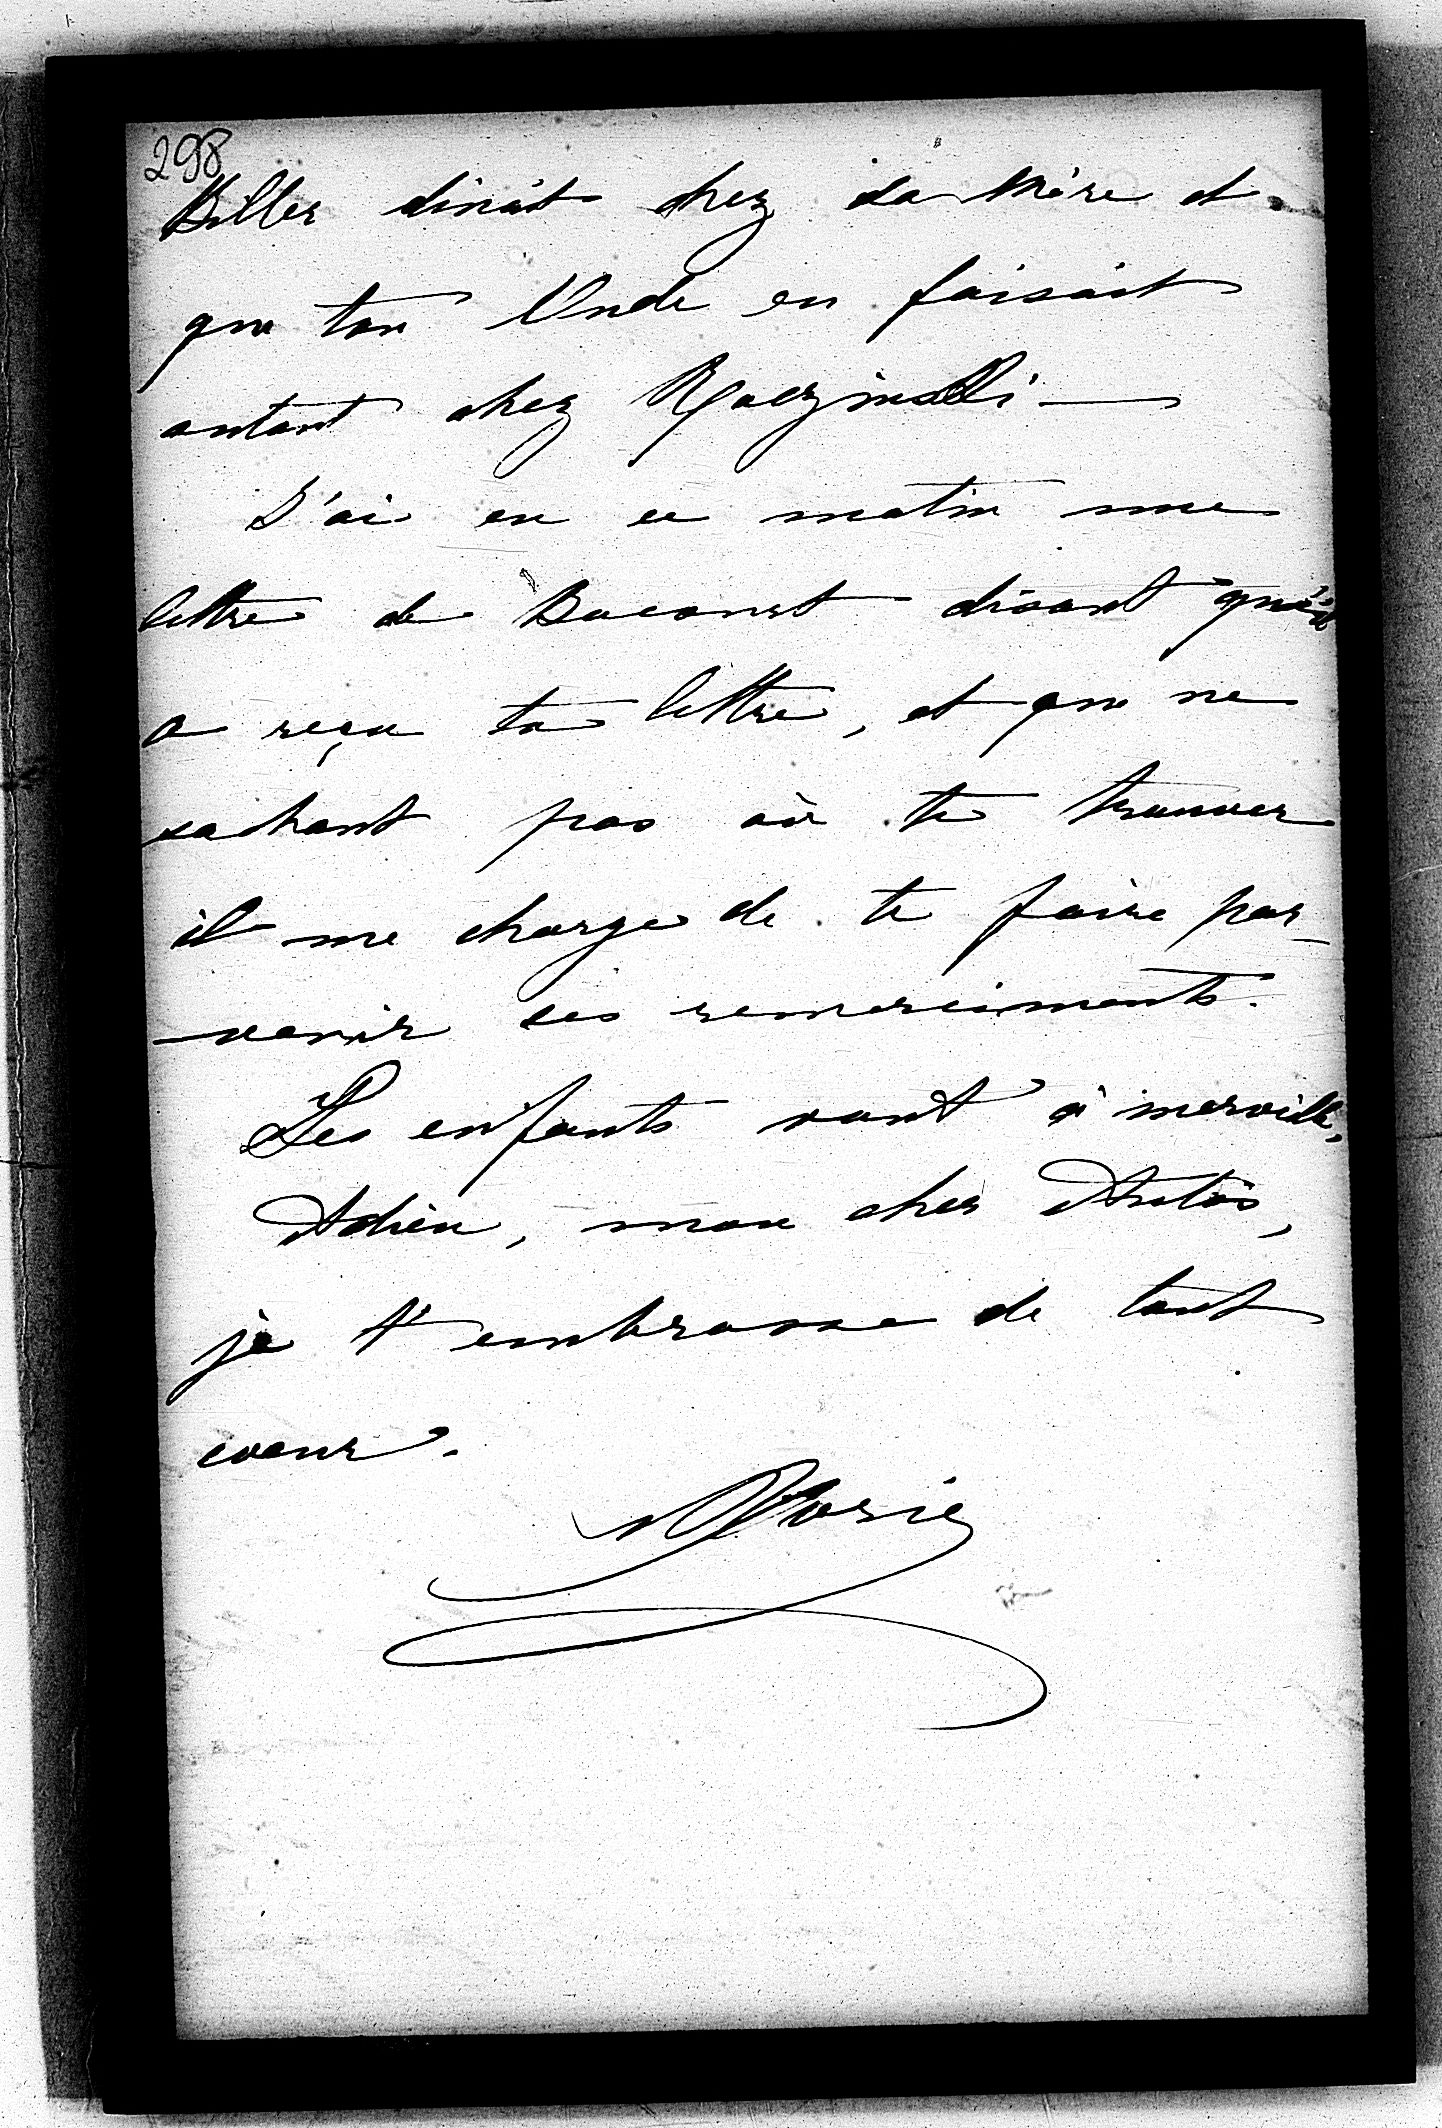 298
Biller dinait chez sa Mère et
que ton Oncle en faisait
autant chez Raczinski —
J'ai eu ce matin une
lettre de Bacourt disant qu'il
a reçu ta lettre, et que ne
sachant pas où te trouver
il me charge de te faire par-
-venir ses remerciments.
Les enfants vont à merveille,
Adieu, mon cher Antos,
je t'embrasse de tout
coeur.
Marie